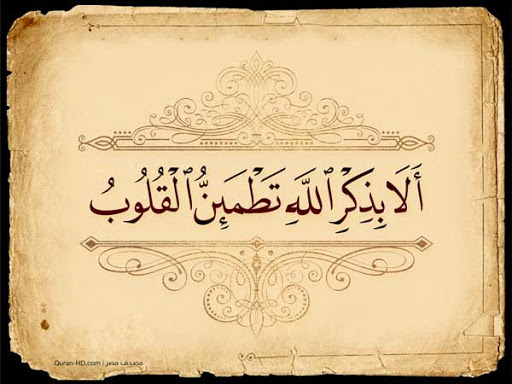 أَلَا بِذِكْرِ ٱللَّهِ تَطْمَئِنُّ ٱلْقُلُوبُ
Quran-HD.com | مصحف مصر